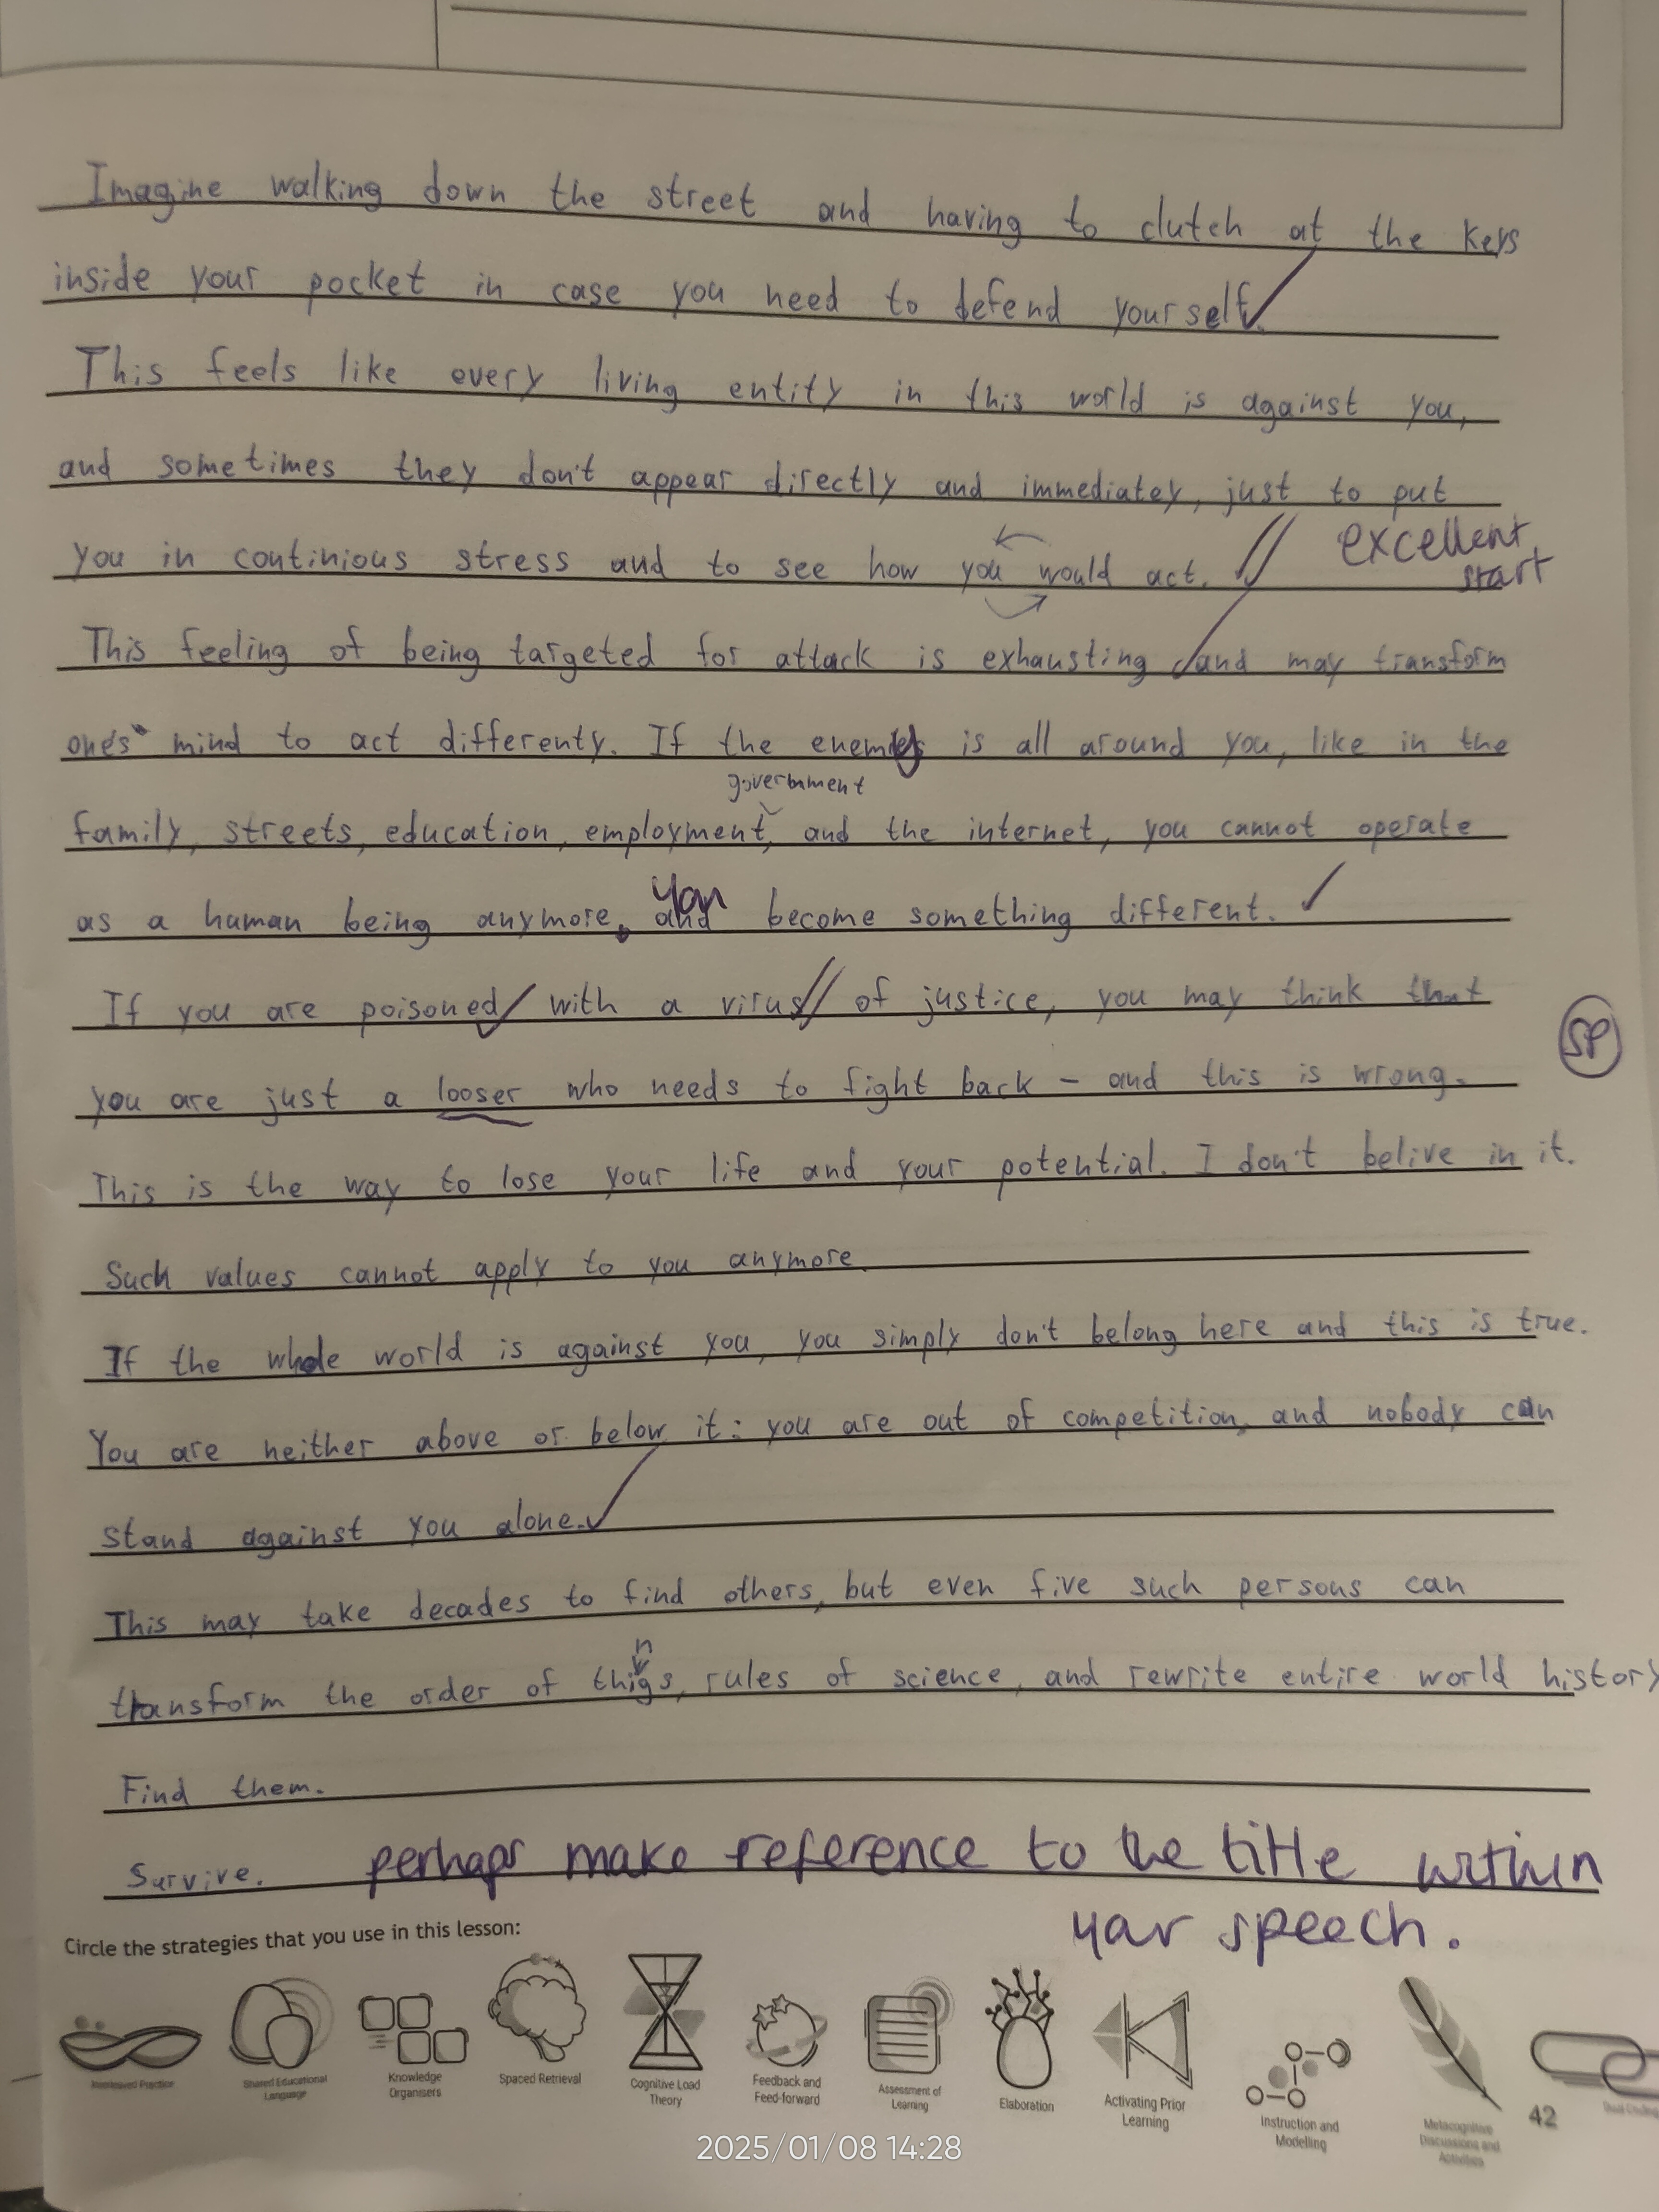 Imagine walking down the street and having to clutch at the keys
inside your pocket in case you need to defend yourself.
This feels like every living entity in this world is against you,
and sometimes they don't appear directly and immediatey, just to put
you in continious stress and to see how you would act.
excellent
start
This feeling of being targeted for attack is exhausting and may transform
one's mind to act differenty. If the enemy is all around you, like in the
government
family, streets, education, employment, and the internet, you cannot operate
as a human being anymore. and become something different.
You
If you are poisoned with a virus of justice, you may think that
SP
you are just a looser who needs to fight back - and this is wrong.
This is the way to lose your life and your potential. I don't belive in it.
Such values cannot apply to you anymore.
If the whole world is against you, you simply don't belong here and this is true.
You are neither above or below it: you are out of competition, and nobody can
stand against you alone.
This may take decades to find others, but even five such persons can
n
transform the order of thigs, rules of science, and rewrite entire world history
Find them.
Survive.
perhaps make reference to the title within
your speech.
Circle the strategies that you use in this lesson:
Interleaved Practice
Shared Educational
Language
Knowledge
Organisers
Spaced Retrieval
Cognitive Load
Theory
Feedback and
Feed-forward
Assessment of
Learning
Elaboration
Activating Prior
Learning
Instruction and
Modelling
Metacognitive
Discussions and
Activities
Dual Coding
42
2025/01/08 14:28